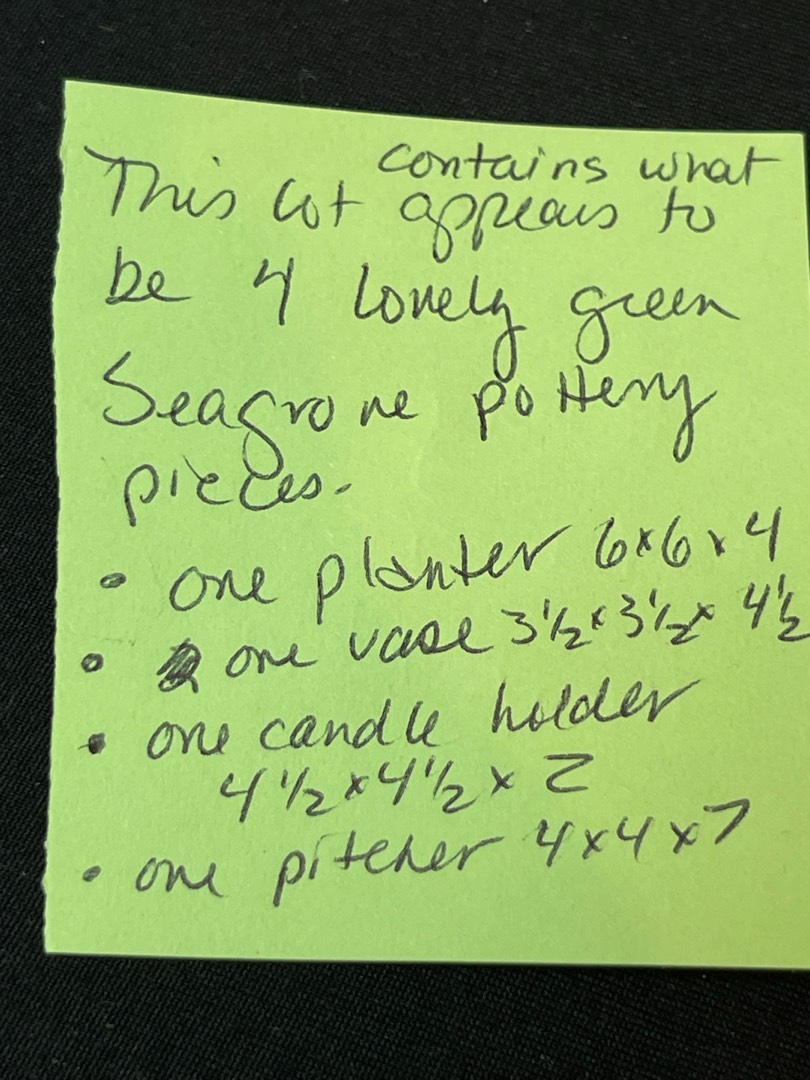 contains what
This lot appears to
be 4 lovely green
Seagrove pottery
pieces.
• one planter 6x6x4
• one vase 3 1/2 x 3 1/2 x 4 1/2
• one candle holder
4 1/2 x 4 1/2 x 2
• one pitcher 4x4x7